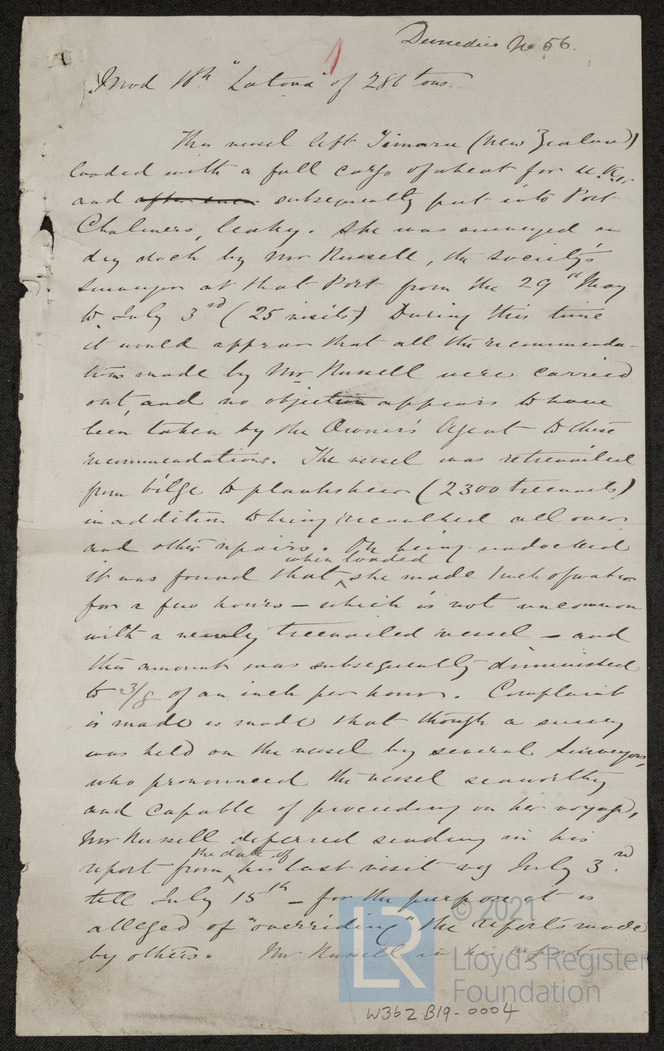 Dunedin No 56.
Iron Bk "Latona" of 286 tons
This vessel left Timaru (New Zealand)
loaded with a full cargo of wheat for U.K.
and subsequently put into Port
Chalmers, leaky. She was surveyed in
dry dock by Mr Russell, the Society's
Surveyor at that Port from the 29th May
to July 3rd (25 visits) During this time
it would appear that all the recommenda-
tions made by Mr Russell were carried
out, and no objection appears to have
been taken by the Owner's Agent to these
recommendations. The vessel was retreenailed
from bilge to planksheer (2300 treenails)
in addition to being recaulked all over
and other repairs. On being undocked
it was found that when loaded she made 1 inch of water
for a few hours – which is not uncommon
with a newly treenailed vessel – and
this amount was subsequently diminished
to 3/8 of an inch per hour. Complaint
is made is made that though a survey
was held on the vessel by several Surveyors,
who pronounced the vessel seaworthy
and capable of proceeding on her voyage,
Mr Russell deferred sending in his
report from the date of his last visit viz July 3rd.
till July 15th – for the purpose it is
alleged of "overriding" the reports made
by others. Mr Russell in his report
© 2021
LR
Lloyd's Register
Foundation
W362 B19-0004